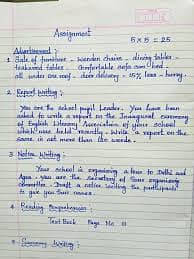 Assignment
5 x 5 = 25
Advertisement :
1. Sale of furniture - wooden chairs - dining tables -
teakwood tables - Comfortable sofa cum bed -
all under one roof - door delivery - 15% less - hurry.
2. Report Writing :
You are the school pupil Leader. You have been
asked to write a report on the Inaugural ceremony
of English Literary Association of your school
which was held recently. Write a report on the
same in not more than 100 words.
3. Notice Writing :
Your school is organising a tour to Delhi and
Agra. You are the Secretary of Tour organising
committee. Draft a notice inviting the participants
to give you their names.
4. Reading Comprehension :
Text Book Page No 111
5. Summary Writing :